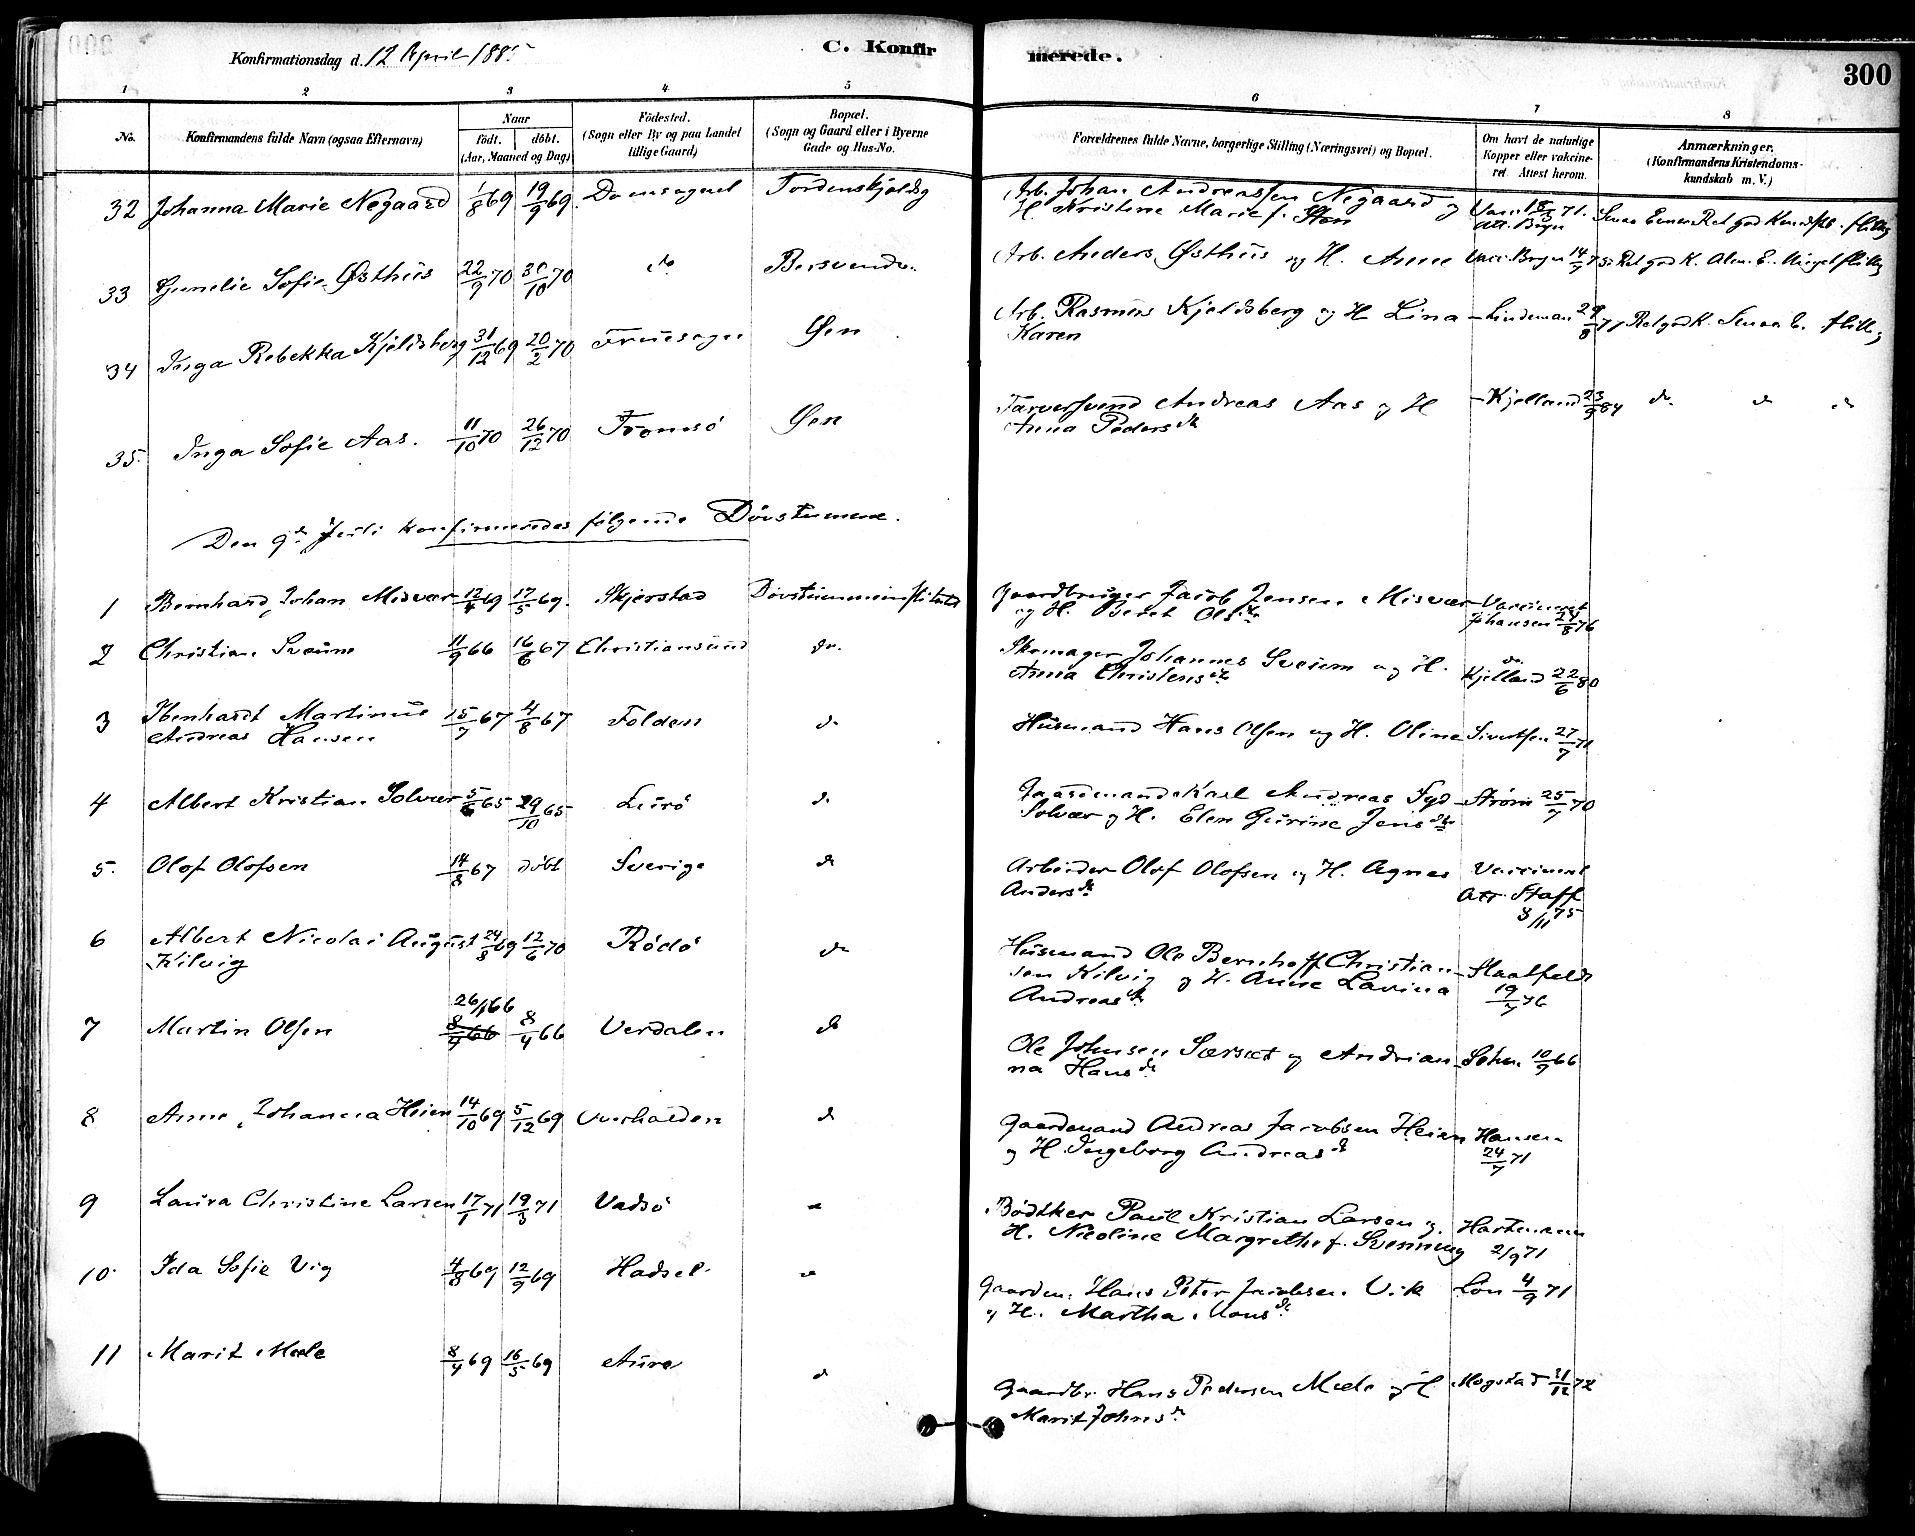 300
Konfirmationsdag d. 12 April 1885
C. Konfirmerede.
1 2 3 4 5 6 7 8
No.
Konfirmandens fulde Navn (ogsaa Efternavn)
Naar
födt. döbt.
(Aar, Maaned og Dag)
Födested.
(Sogn eller By og paa Landet
tillige Gaard)
Bopæl.
(Sogn og Gaard eller i Byerne
Gade og Hus-No.
Forældrenes fulde Navne, borgerlige Stilling (Næringsvei) og Bopæl.
Om havt de naturlige
Kopper eller vakcine-
ret. Attest herom.
Anmærkninger.
(Konfirmandens Kristendoms-
kundskab m. V.)
32 Johanna Marie Negaard 1/8 69 19/9 69 Domsognet Tordenskjoldsg Arb. Johan Andreassen Negaard og
H. Kristine Marie f. Sten
33 Gunelie Sofie Østhus 22/9 70 30/10 70 do Arb. Anders Østhus og H. Anne
34 Inga Rebekka Kjeldsberg 31/12 69 20/2 70 Fruesogn Øen Arb. Rasmus Kjeldsberg og H. Lina
Karen Lindeman
35. Inga Sofie Aas. 11/10 70 26/12 70 Tromsö Øen Farversvend Andreas Aas og H
Anna Pedersdr Kjelland 23/9 84 do do do
Den 9de Juli konfirmeredes følgende Dövstumme.
1 Bernhard Johan Misvær 12/4 69 17/5 69. Skjerstad Dövstummeinstitutet Gaardbruger Jacob Jensen Misvær
og H. Beret Olsdr Vaccineret
Johansen 24/8 76
2 Christian Sveum 11/9 66 16/6 67 Christiansund do. Skomager Johannes Sveum og H.
Anna Christensdr do. Kjelland 22/6 80
3 Ibenhardt Martinus
Andreas Hansen 15/7 67 4/8 67 Folden do Husmand Hans Olsen og H. Oline Sivertsen 27/7 71
4 Albert Kristian Solvær 5/6 65 29/10 65 Lurö do Gaardmand Karl Andreas Syd
Solvær og H. Elen Gurine Jensdr Strøm 25/7 70
5. Olof Olofsen 14/8 67 döbt Sverige do Arbeider Olof Olofsen og H. Agnes
Andersdr Vaccineret
Att. Staff
8/11 75
6 Albert Nicolai August
Kilvig 24/8 69 12/6 70 Rödö do Husmand Ole Bernhoff Christian
sen Kilvig og H. Anne Lavina
Andreasdr 19/7 76
7 Martin Olsen 26/1 66 8/4 66 8/4 66 Verdalen do Ole Johnsen Særset og Andrian
na Hansdr 10/9 66
8 Anne Johanna Heien 14/10 69 5/12 69 Overhalden do Gaardmand Andreas Jacobsen Heien
og H Ingeborg Andreasdr Hansen
24/7 71
9 Laura Christine Larsen 17/1 71 19/3 71 Vadsö do Bödtker Paul Kristian Larsen og
H. Nicoline Margrethe f. Svenning Hartmann
2/9 71
10. Ida Sofie Vig 4/8 69 12/9 69 Hadsel do Gaardm. Hans Peter Jacobsen Vik
og H. Martha Monsdr Lon 4/9 71
11 Marit Mele 8/4 69 16/5 69 Aure do Gaardbr. Hans Pedersen Mele og H.
Marit Johnsdr Mogstad 31/12 72